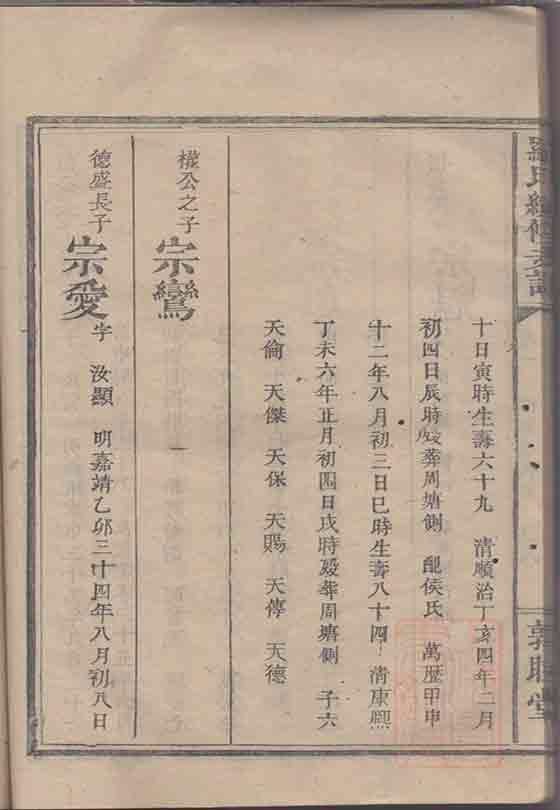 羅氏續修支譜
敦睦堂
十日寅時生壽六十九 清順治丁亥四年二月
初四日辰時歿葬周塘側 配侯氏 萬歷甲申
十二年八月初三日巳時生壽八十四 清康熙
丁未六年正月初四日戌時歿葬周塘側 子六
天倫 天傑 天保 天賜 天傳 天德
權公之子 宗鸞
德盛長子 宗愛 字 汝顯 明嘉靖乙卯三十四年八月初八日